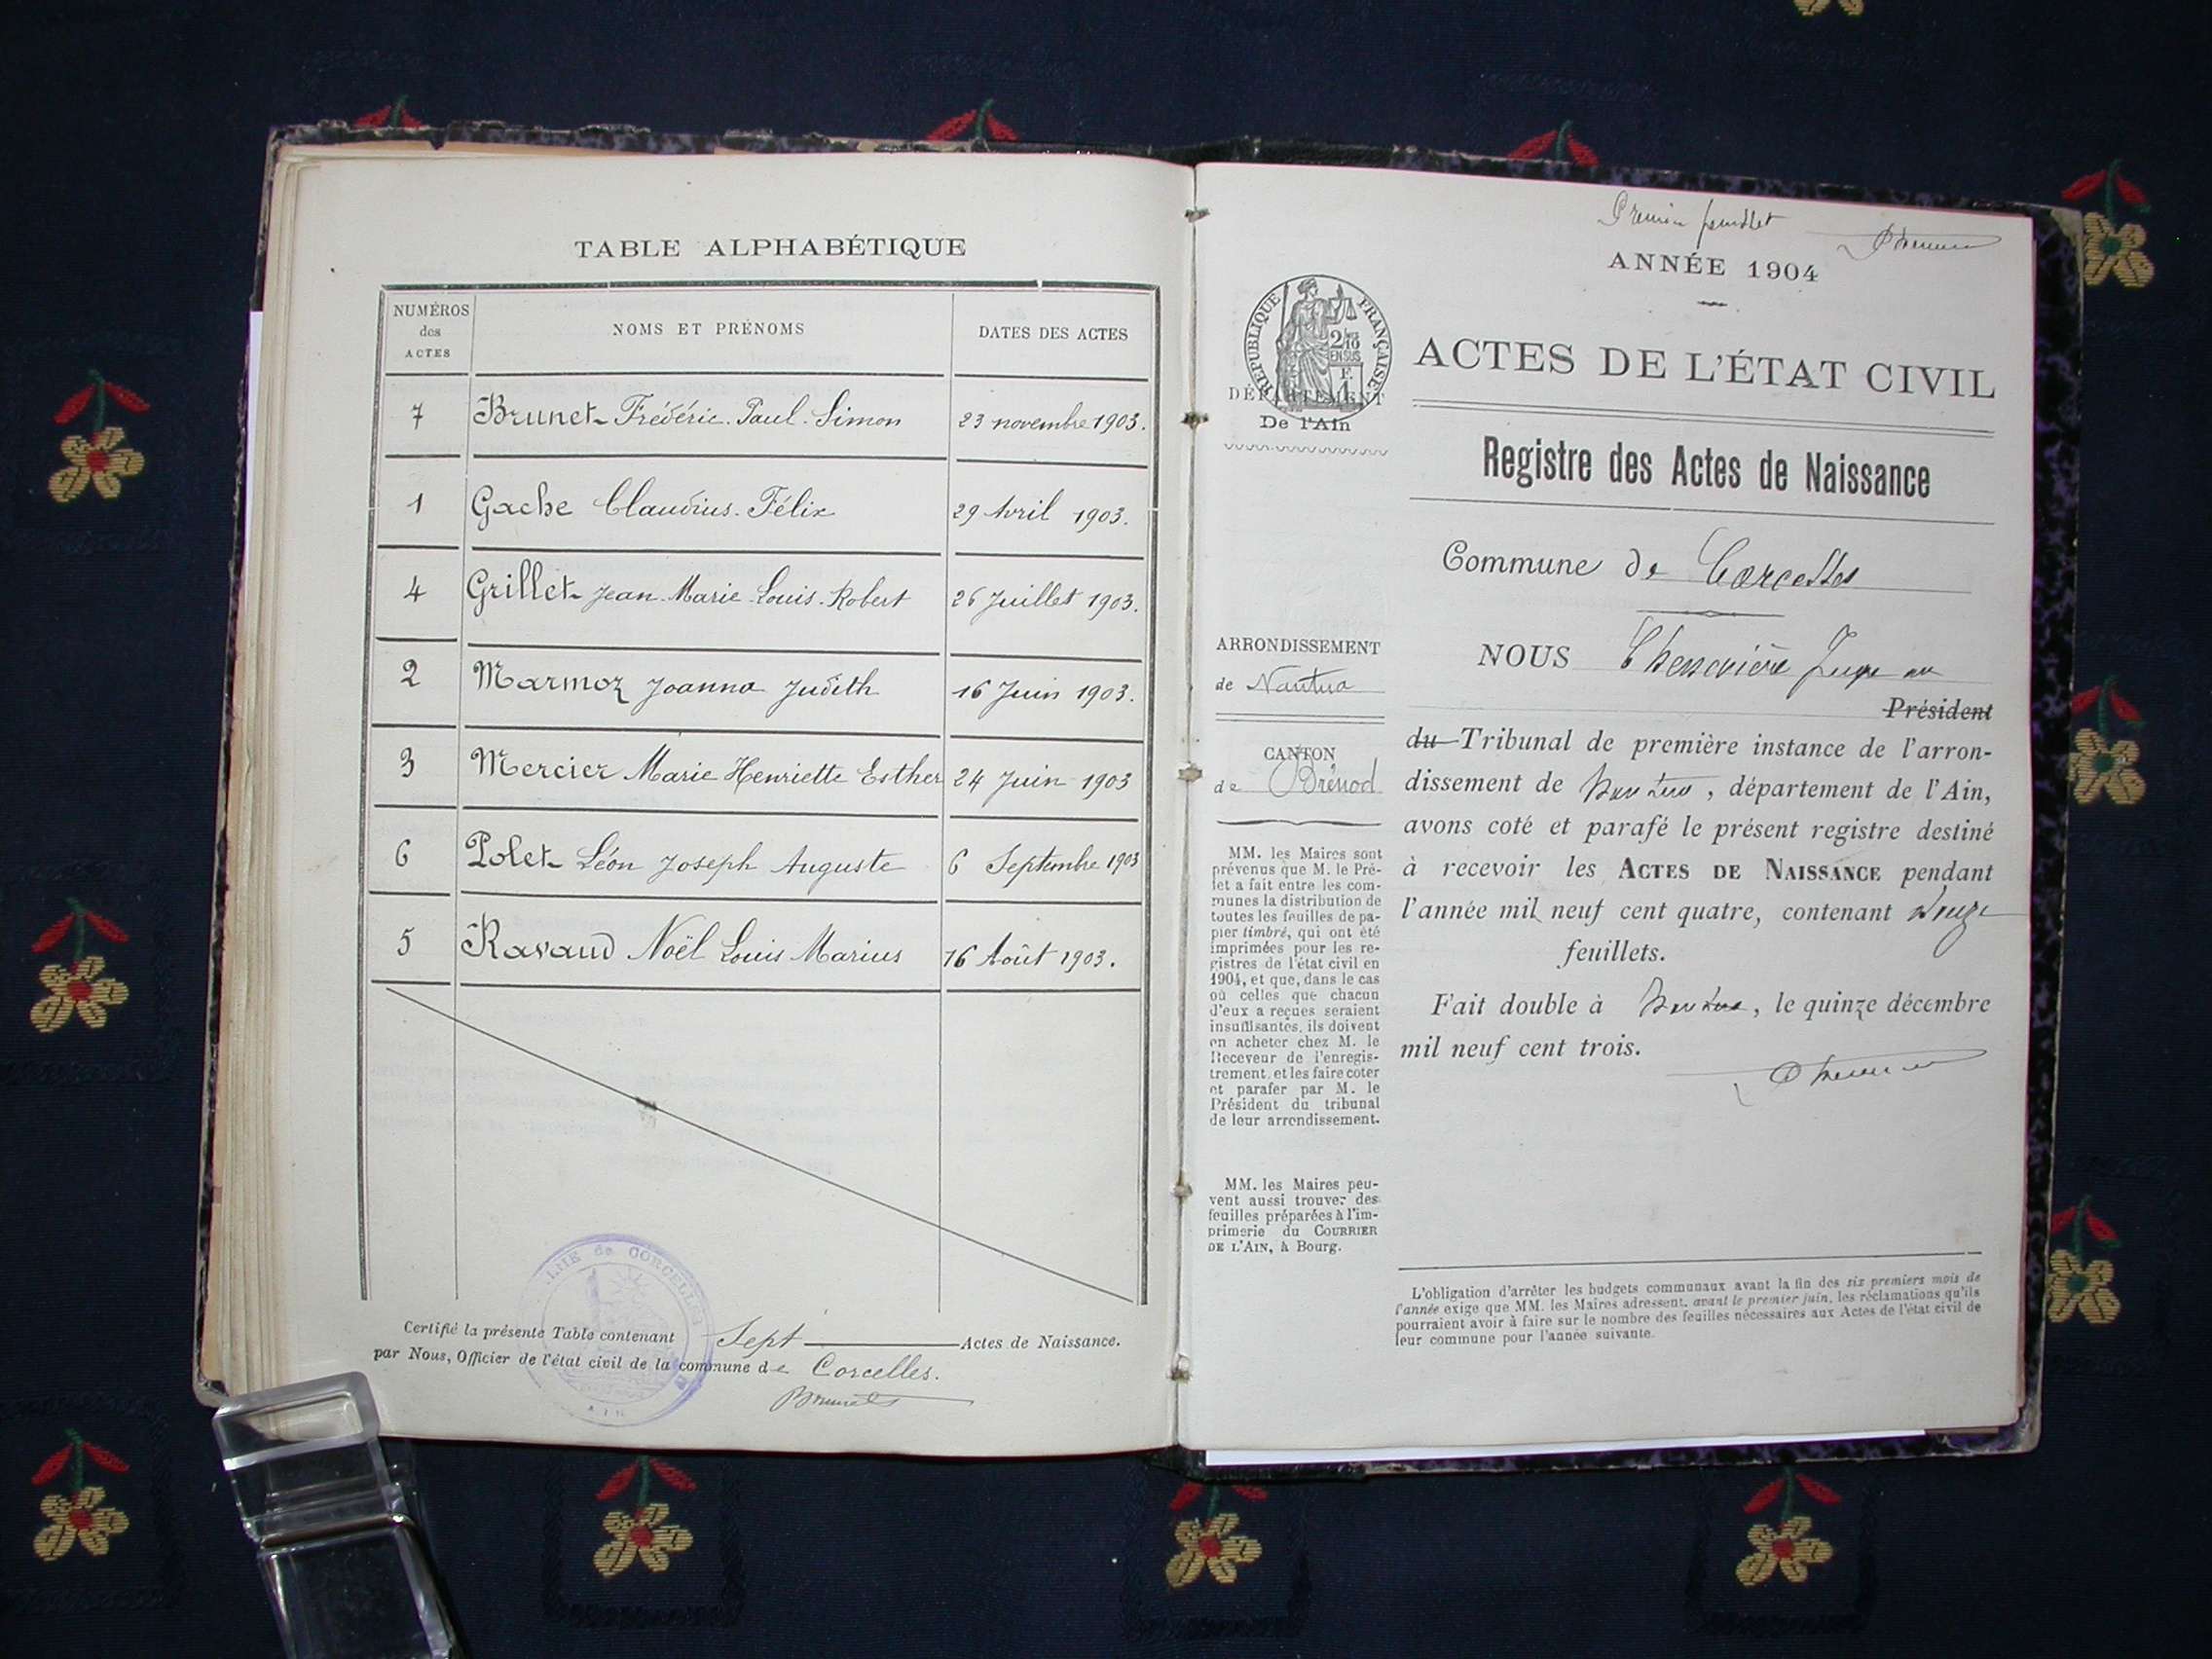 TABLE ALPHABÉTIQUE
NUMÉROS des ACTES
NOMS ET PRÉNOMS
DATES DES ACTES
7 Brunet Frédéric Paul Simon 23 novembre 1903.
1 Gache Claudius Félix 29 Avril 1903.
4 Grillet Jean Marie Louis Robert 26 Juillet 1903.
2 Marmoz Joanna Judith 16 Juin 1903.
3 Mercier Marie Henriette Esther 24 Juin 1903
6 Polet Léon Joseph Auguste 6 Septembre 1903
5 Ravaud Noël Louis Marius 16 Août 1903.
Certifié la présente Table contenant Sept Actes de Naissance.
par Nous, Officier de l'état civil de la commune de Corcelles.
Brunet
de CORCELLES
AIN
Premier feuillet
ANNÉE 1904
RÉPUBLIQUE FRANÇAISE
2/10
EN SUS
1 F.
DÉPARTEMENT
De l'Ain
ACTES DE L'ÉTAT CIVIL
Registre des Actes de Naissance
Commune de Corcelles
ARRONDISSEMENT
de Nantua
CANTON
de Brénod
MM. les Maires sont
prévenus que M. le Pré-
fet a fait entre les com-
munes la distribution de
toutes les feuilles de pa-
pier timbré, qui ont été
imprimées pour les re-
gistres de l'état civil en
1904, et que, dans le cas
où celles que chacun
d'eux a reçues seraient
insuffisantes, ils doivent
en acheter chez M. le
Receveur de l'enregis-
trement, et les faire coter
et parafer par M. le
Président du tribunal
de leur arrondissement.
MM. les Maires peu-
vent aussi trouver des
feuilles préparées à l'im-
primerie du COURRIER
DE L'AIN, à Bourg.
NOUS Chenevière Juge au
Président
du Tribunal de première instance de l'arron-
dissement de Nantua, département de l'Ain,
avons coté et parafé le présent registre destiné
à recevoir les ACTES DE NAISSANCE pendant
l'année mil neuf cent quatre, contenant
feuillets.
Fait double à Nantua, le quinze décembre
mil neuf cent trois.
L'obligation d'arrêter les budgets communaux avant la fin des six premiers mois de
l'année exige que MM. les Maires adressent, avant le premier juin, les réclamations qu'ils
pourraient avoir à faire sur le nombre des feuilles nécessaires aux Actes de l'état civil de
leur commune pour l'année suivante.